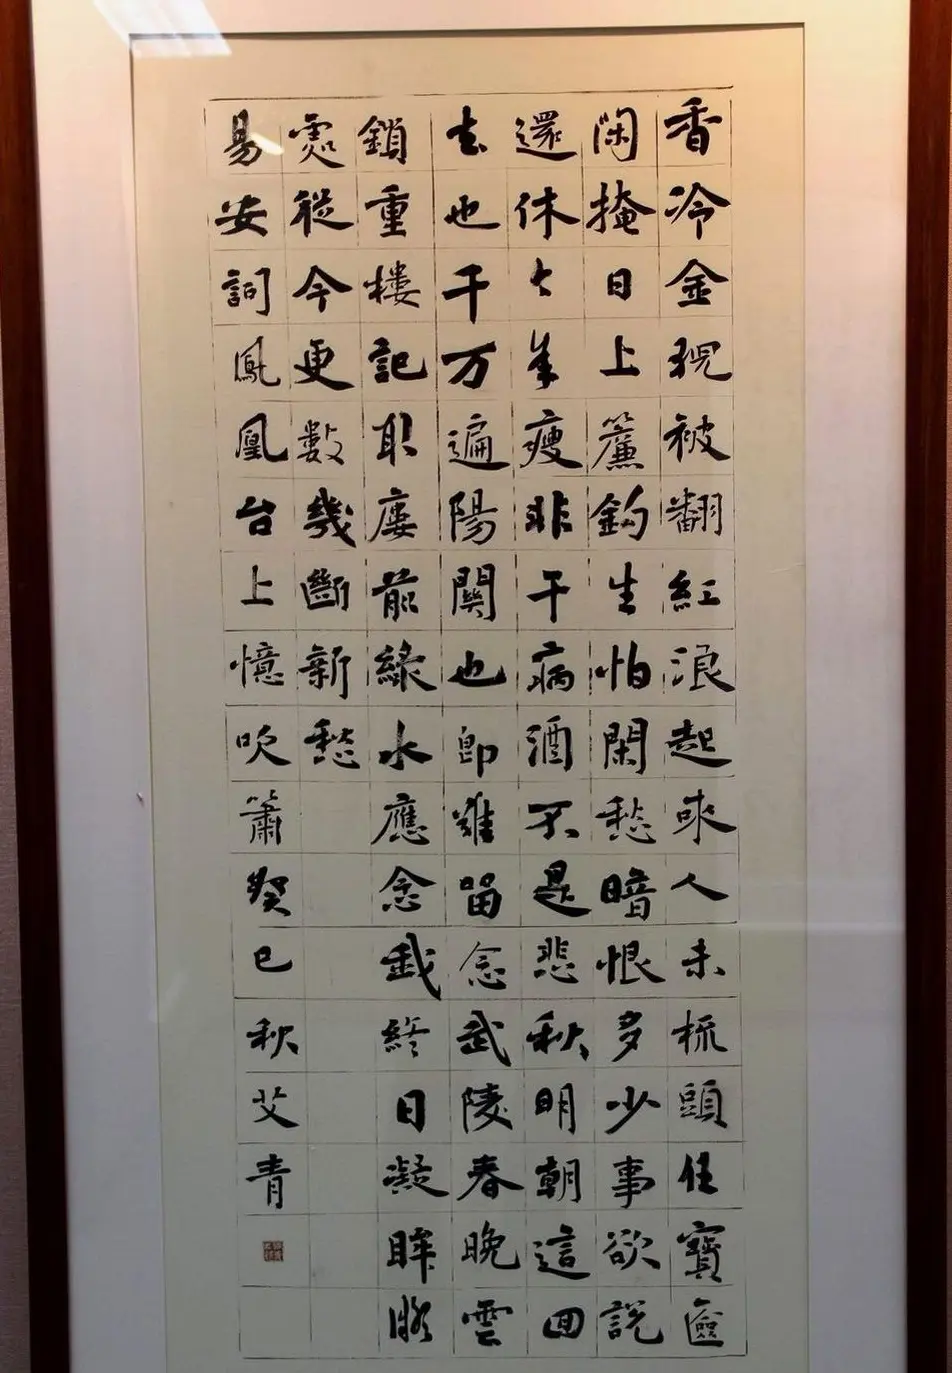 香冷金猊被翻紅浪起来人未梳頭任寶匳
閑掩日上簾鈎生怕閑愁暗恨多少事欲説
還休年瘦非干病酒不是悲秋明朝這囬
去也千万遍陽關也即難留念武陵春晚雲
鎖重樓記取廔前綠水應念我終日凝眸
處從今更數幾斷新愁
易安詞鳳凰台上憶吹簫癸巳秋艾青